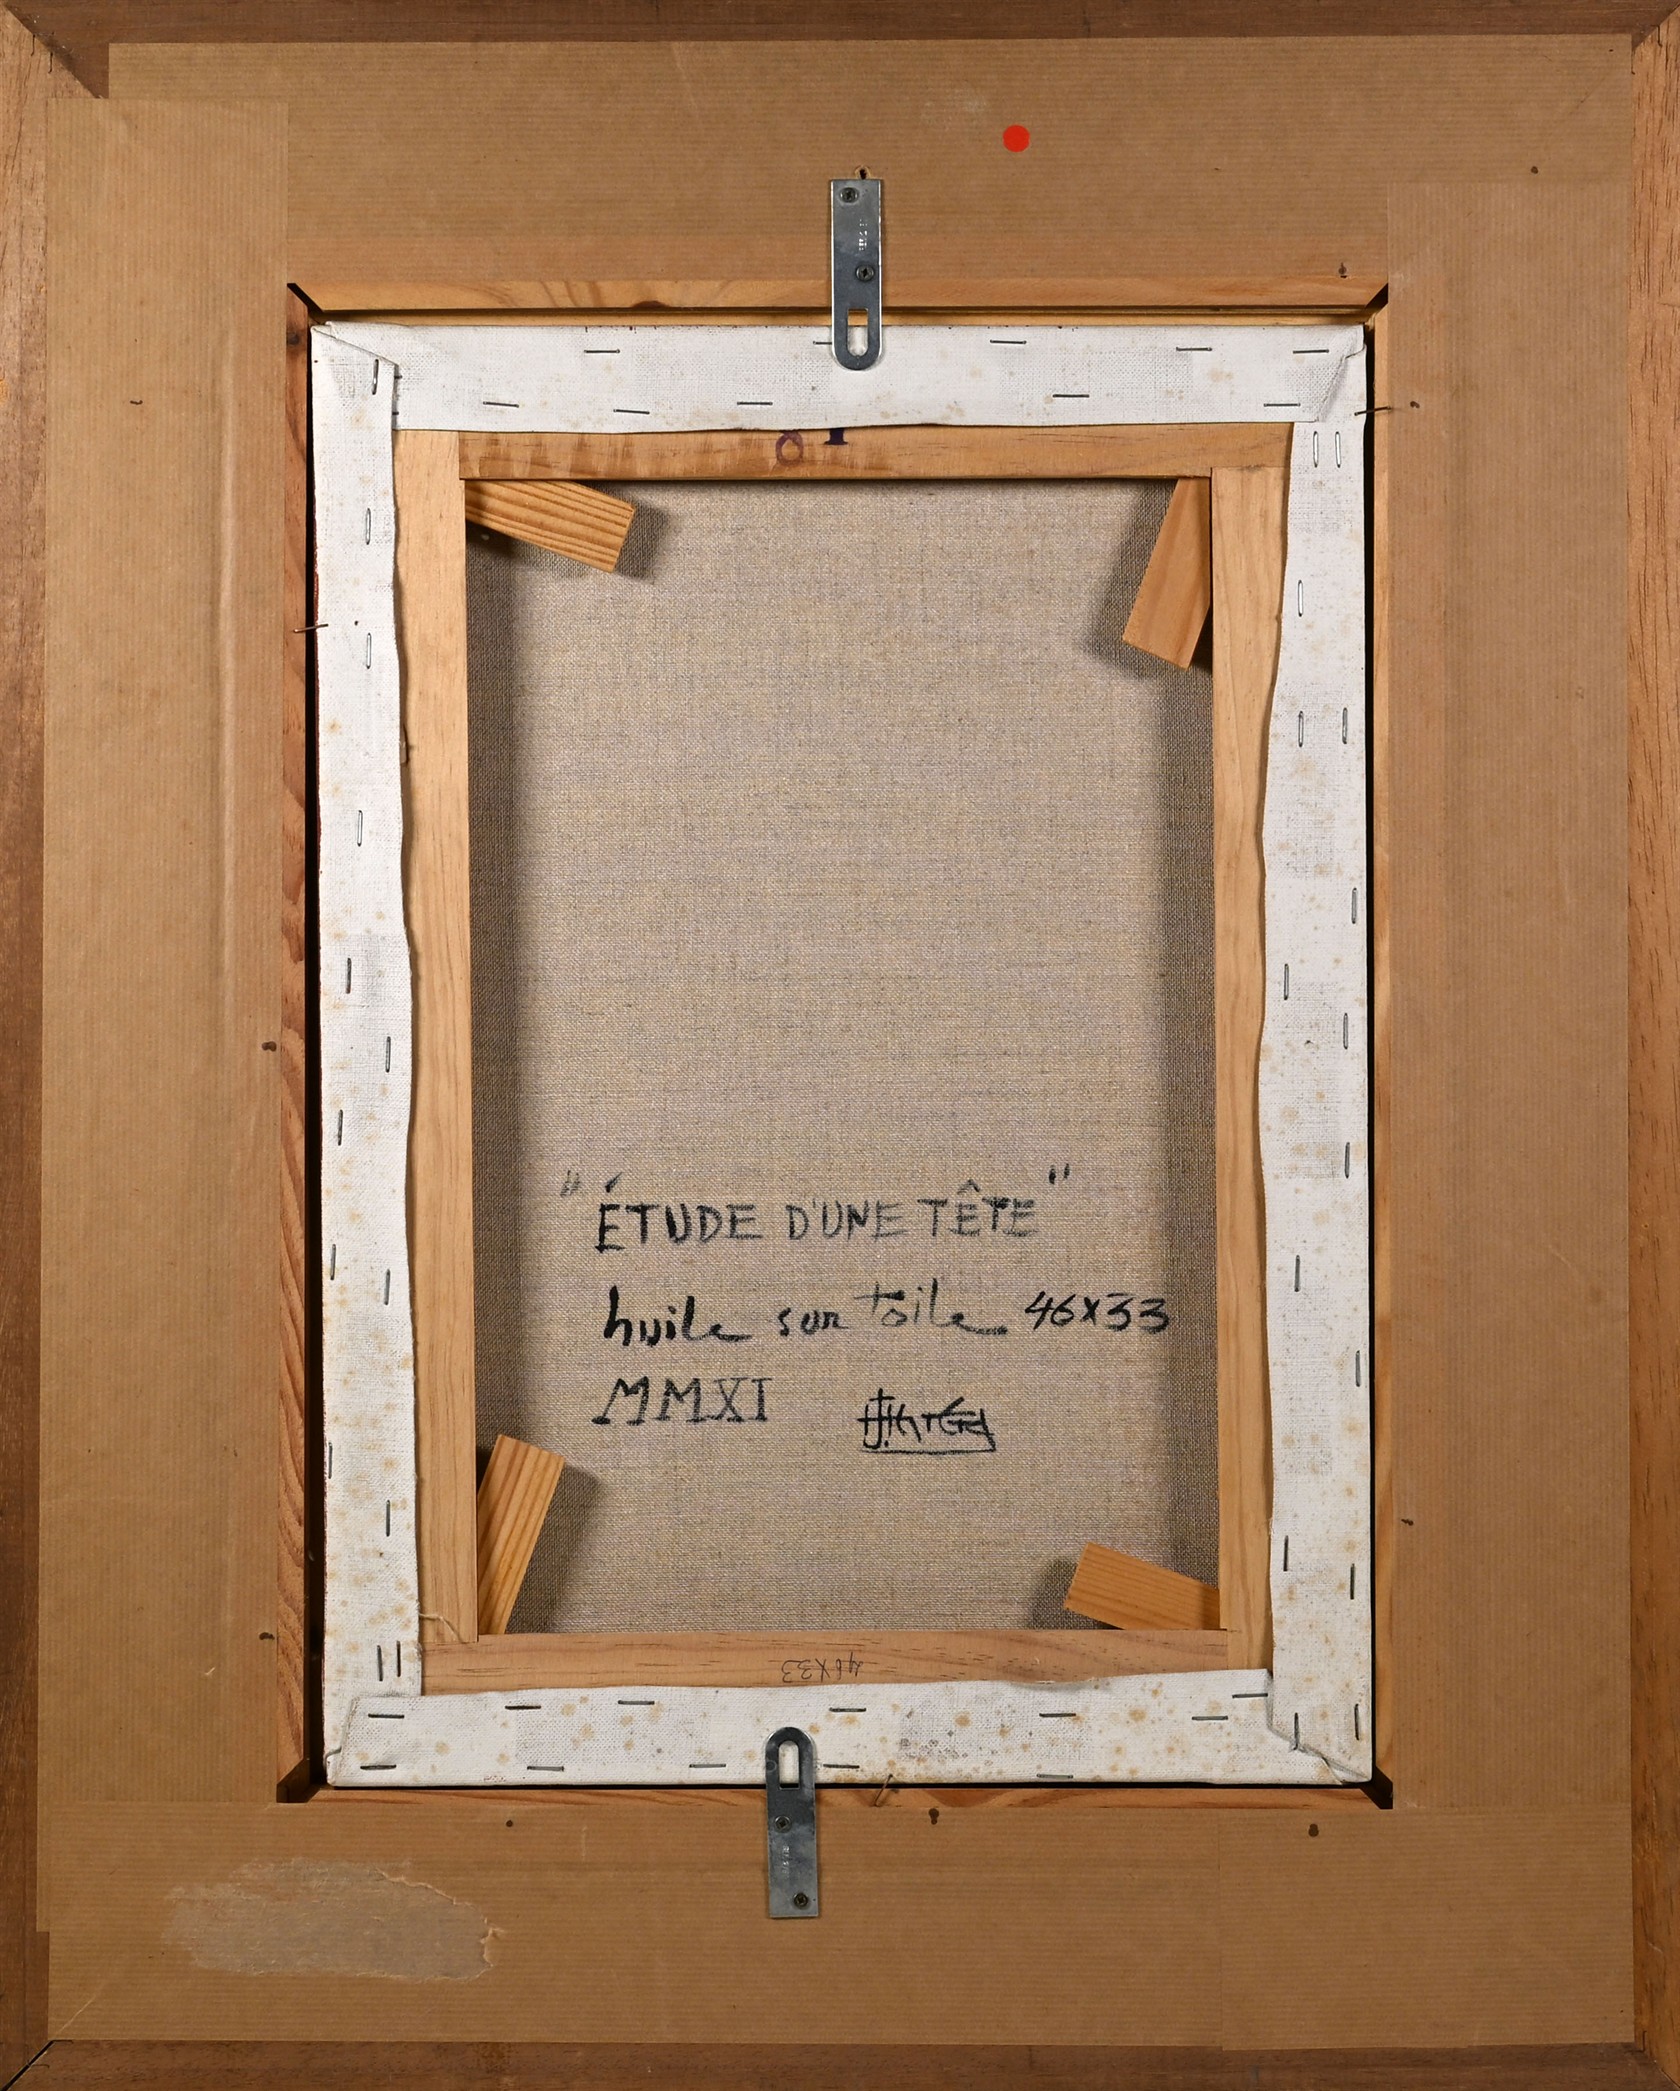 "ÉTUDE D'UNE TÊTE"
huile sur toile 46X33
MMXI
46X33